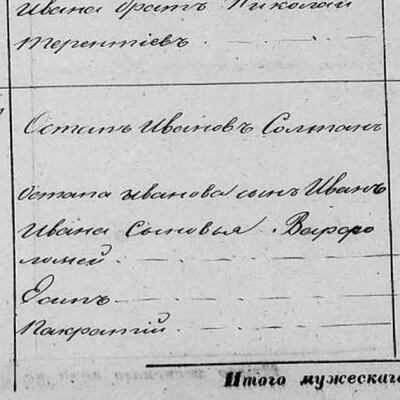 Ивана братъ Николай
Терентіевъ
Остапъ Ивановъ Солтан
Остапа Иванова сынъ Иванъ
Ивана Сыновья. Варфо
ломей
Осипъ
Пакратій
Итого мужескаго